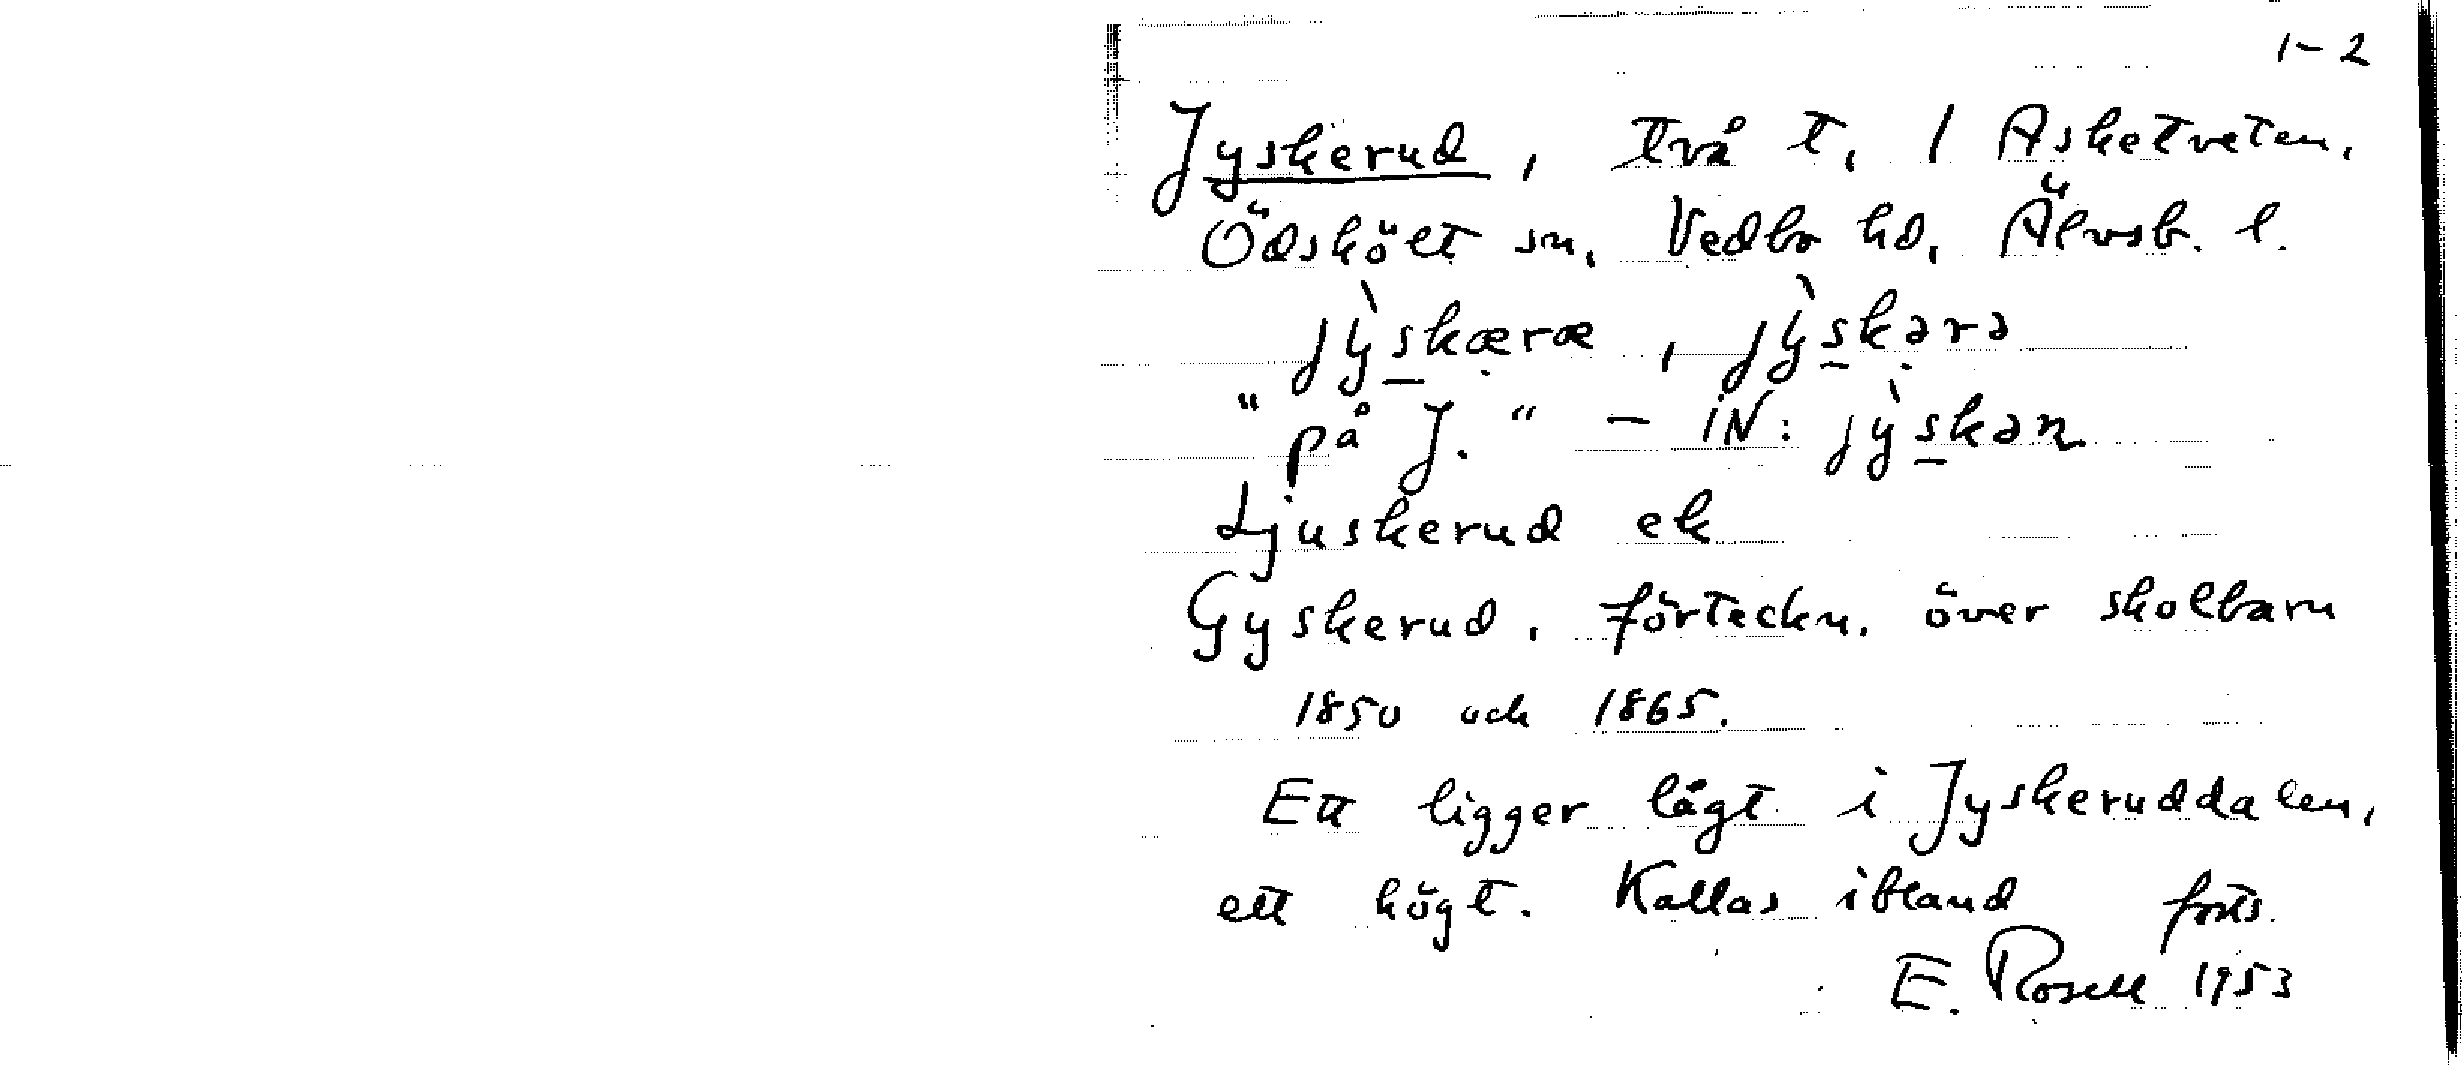 1–2
Jyskerud, två t. / Asketveten,
Ödskölt sn, Vedbo hd, Älvsb. l.
jỳskæræ, jỳskərə
"på J." – iN: jỳskən
Ljuskerud ek
Gyskerud, förteckn. över skolbarn
1850 och 1865.
Ett ligger lågt i Jyskeruddalen,
ett högt. Kallas ibland forts.
E. Rosell 1953